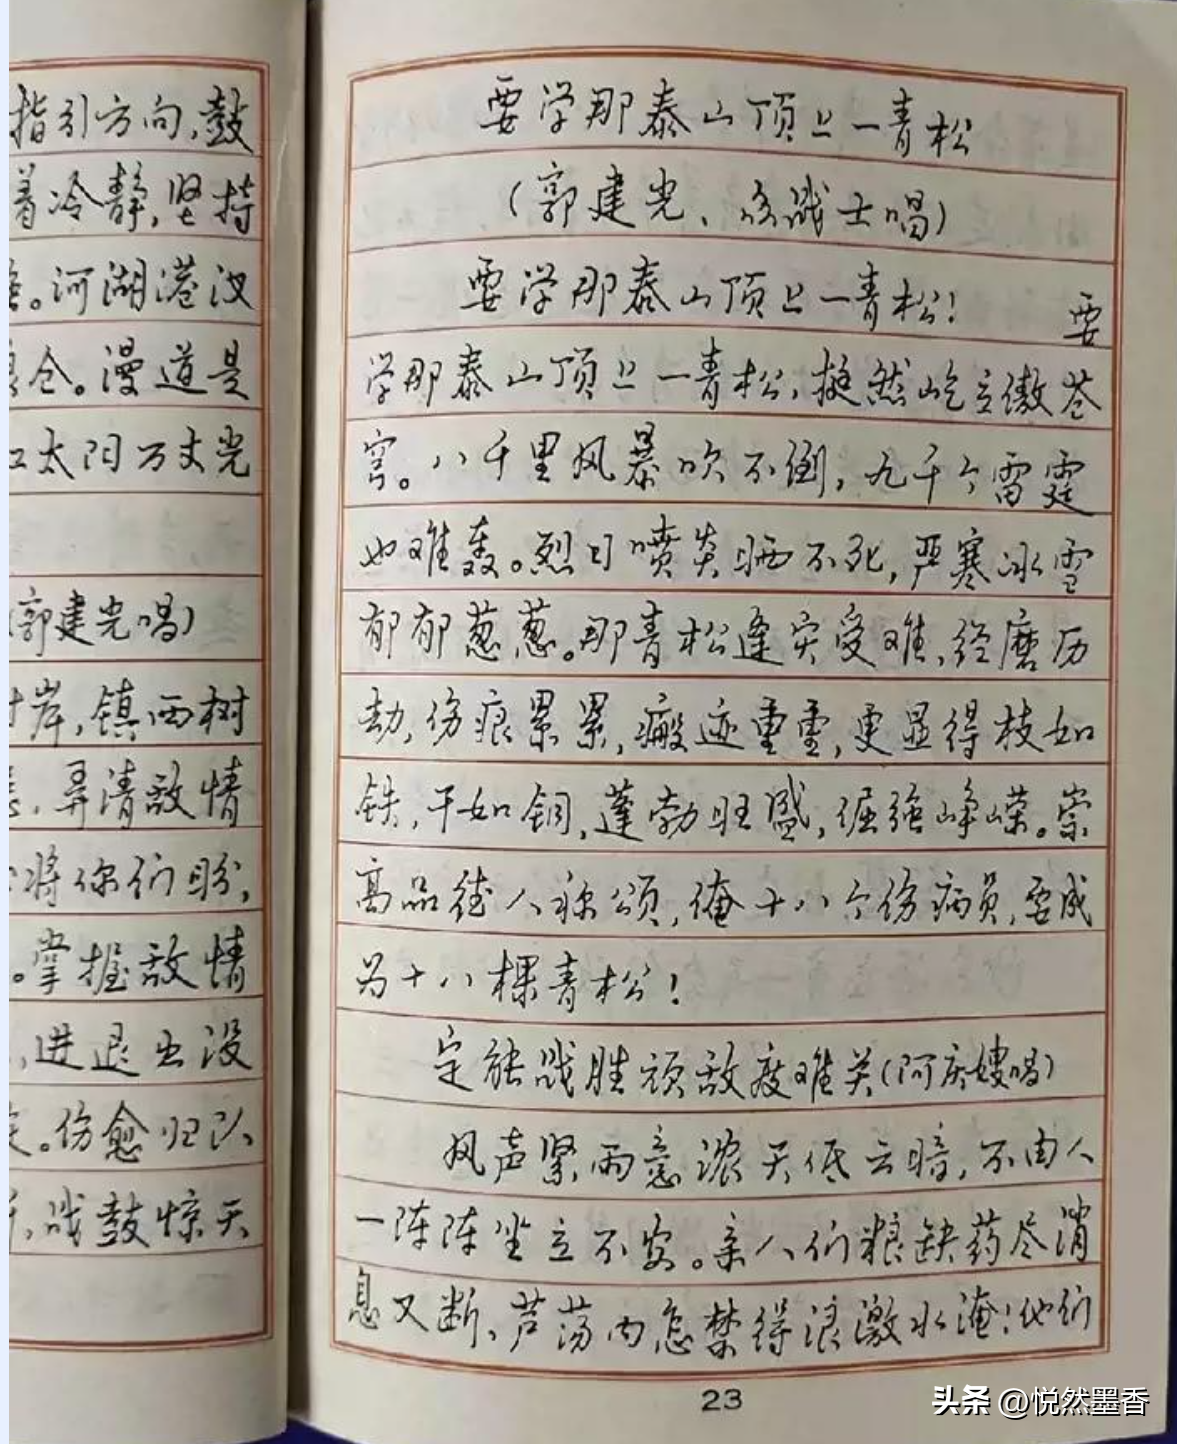 指引方向,鼓
着冷静,坚持
。河湖港汊
仓。漫道是
太阳万丈光
(郭建光唱)
岸,镇西树
,弄清敌情
将你们盼,
。掌握敌情
,进退出没
。伤愈归队
,战鼓惊天
要学那泰山顶上一青松
(郭建光、众战士唱)
要学那泰山顶上一青松! 要
学那泰山顶上一青松,挺然屹立傲苍
穹。八千里风暴吹不倒,九千个雷霆
也难轰。烈日喷炎晒不死,严寒冰雪
郁郁葱葱。那青松逢灾受难,经磨历
劫,伤痕累累,瘢迹重重,更显得枝如
铁,干如铜,蓬勃旺盛,倔强峥嵘。崇
高品德人称颂,俺十八个伤病员,要成
为十八棵青松!
定能战胜顽敌度难关(阿庆嫂唱)
风声紧雨意浓天低云暗,不由人
一阵阵坐立不安。亲人们粮缺药尽消
息又断,芦荡内怎禁得浪激水淹!他们
23
头条 @悦然墨香